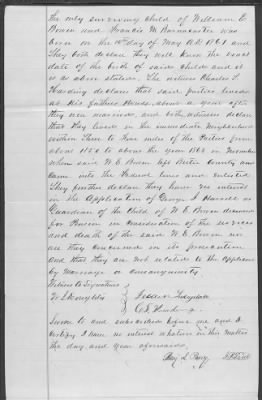 The only surviving child of William E
Brown and Francis M Barnacastle was
born on the 12th day of May A.D. 1861 and
they both declare they well know the exact
date of the birth of said child and it
is as above stated. The witness Charles S.
Harding declares that said parties lived
at his fathers house about a year after
they were married, and both witnesses declare
that they lived in the immediate neighborhood
within three to five miles of the parties from
about 1856 to about the year 1863 in November
when said W. E. Brown left County and
came into the Federal lines and enlisted
They further declare they have no interest
in the Application of George J. Harrell as
Guardian of the Child of W. E. Brown deceased
for Pension in consideration of the services
and death of the said W. E. Brown nor
are they concerned in its prosecution
and that they are not related to the applicant
by marriage or consanguinity.
Witness to Signatures
Sworn to and subscribed before me and I
certify I have no interest whatever in this matter
the day and year aforesaid.